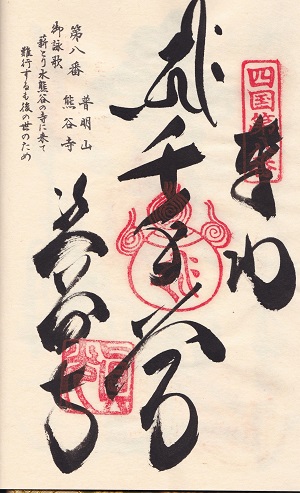 奉納
四国
千手
熊谷寺
第八番 普明山
熊谷寺
御詠歌
薪とり水熊谷の寺に来て
難行するも後の世のため